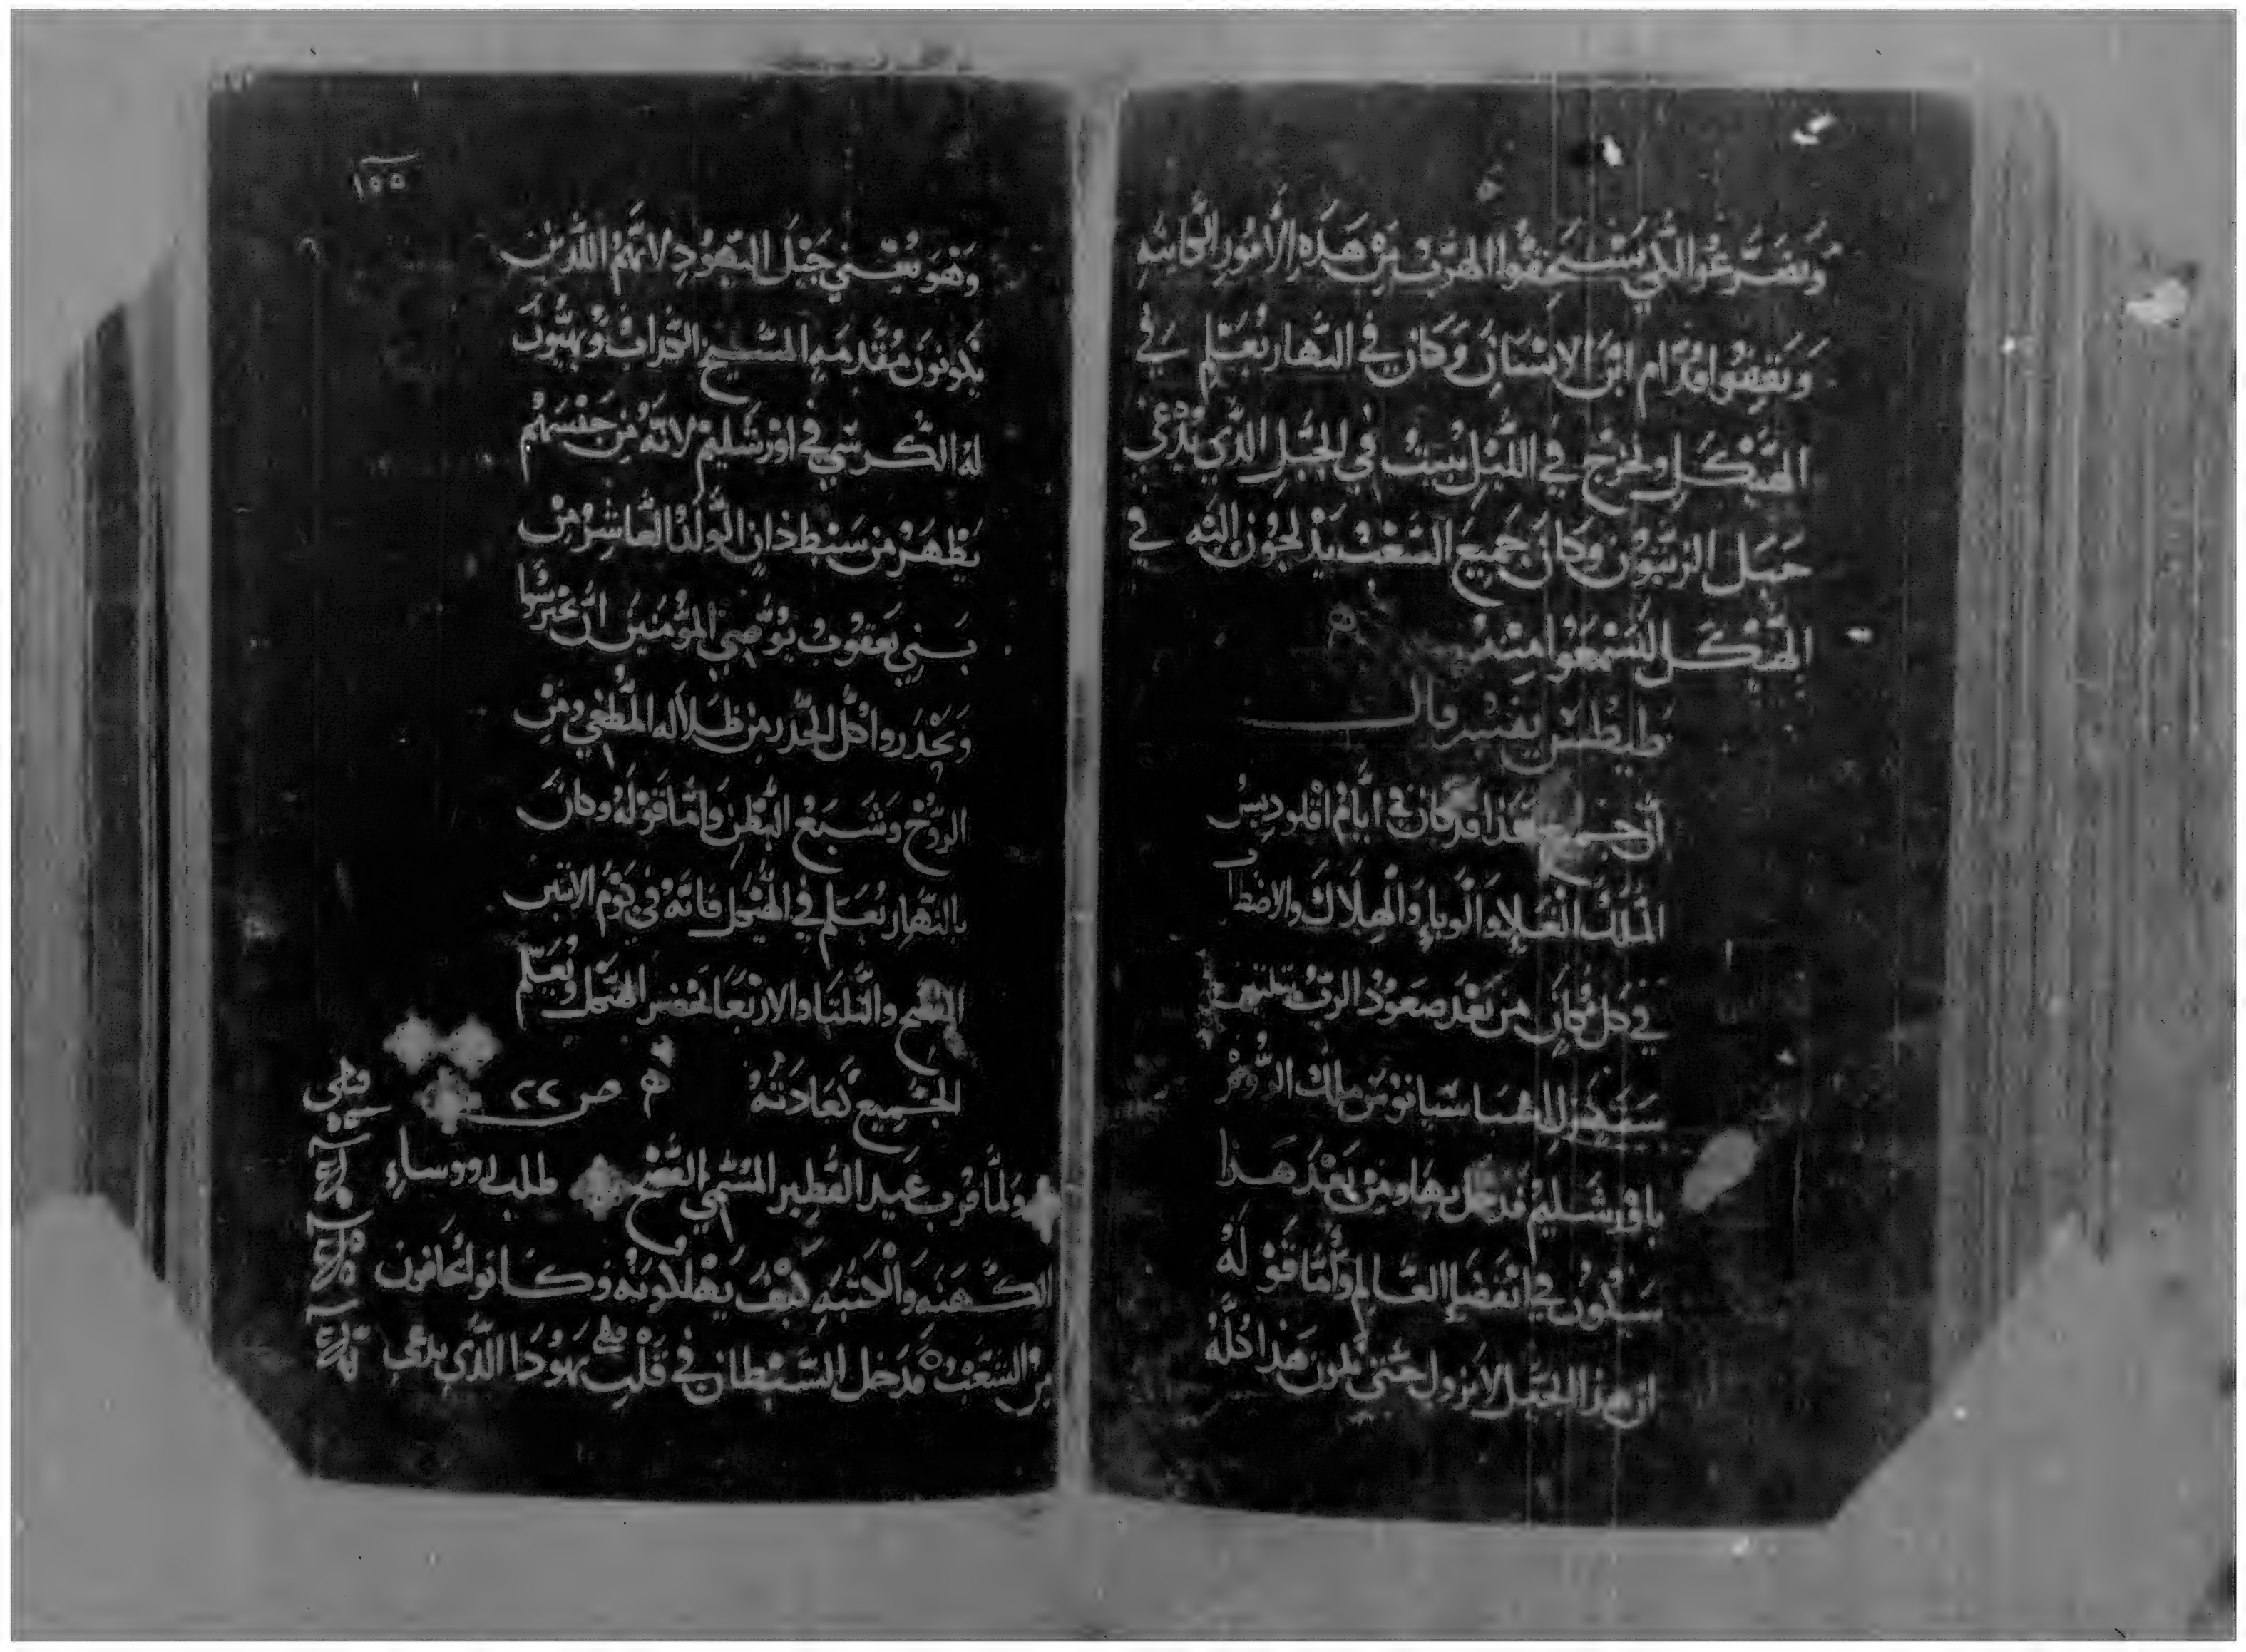 وتضرعوا لكي تستحقوا الهرب من هذه الأمور الكاينه
وتقفوا قدام ابن الانسان وكان في النهار يعلم في
الهيكل ويخرج في الليل يبيت في الجبل الذي يدعي
جبل الزيتون وكان جميع الشعب يدلجون اليه في
الهيكل ليسمعوا منه
طيطس يفسر قال
ان جميع هذا قد كان في ايام اقلوديس
الملك الغلاء والوباء والهلاك والاضطراب
في كل مكان من بعد صعود الرب
من ملك الروم
باورشليم فدخل بها ومن بعد هذا
سيكون في انقضاء العالم واما قوله
ان هذا الجيل لا يزول حتي يكون هذا كله
١٥٥
وهو يعني جيل اليهود لانهم الذين
يكونون مقدمه المسيح الكداب ويهيون
له الكرسي في اورشليم لانه من جنسهم
يظهر من سبط دان الولد العاشر من
بني يعقوب يوصي المؤمنين ان يحترسوا
ويحدروا كل الحدر من ظلاله المطغي ومن
الروح وشبع البطن واما قوله وكان
بالنهار يعلم في الهيكل فانه في يوم الاتنين
والتلتا والاربعا يحضر الهيكل ويعلم
الجميع كعادته ص ٢٢
ولما قرب عيد الفطير المسمي الفصح طلب رووساء
الكهنه والكتبه كيف يهلكونه وكانوا يخافون
من الشعب فدخل الشيطان في قلب يهودا الذي يدعي